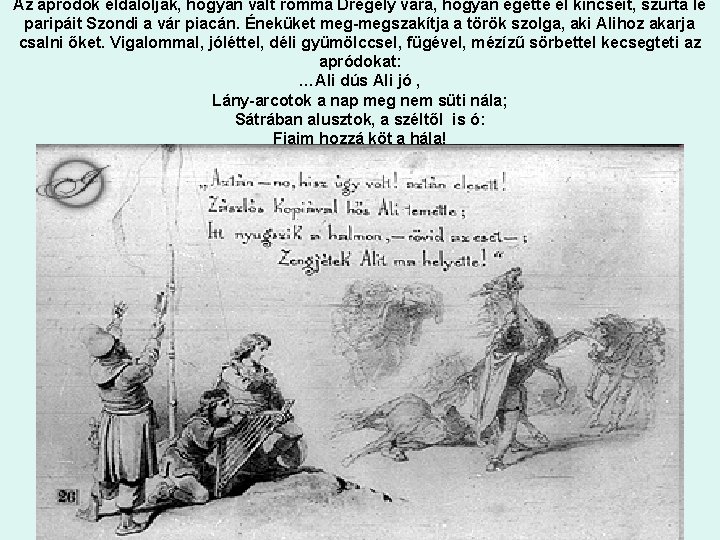 Az apródok eldalolják, hogyan vált rommá Drégely vára, hogyan égette el kincseit, szúrta le
paripáit Szondi a vár piacán. Éneküket meg-megszakítja a török szolga, aki Alihoz akarja
csalni őket. Vigalommal, jóléttel, déli gyümölccsel, fügével, mézízű sörbettel kecsegteti az
apródokat:
…Ali dús Ali jó ,
Lány-arcotok a nap meg nem süti nála;
Sátrában alusztok, a széltől is ó:
Fiaim hozzá köt a hála!
„Aztán – no, hisz úgy volt! aztán elesett!
Zászlós kopiával hős Ali temette;
Itt nyugszik a halmon, – rövid az eset –;
Zengjétek Alit ma helyette!“
26